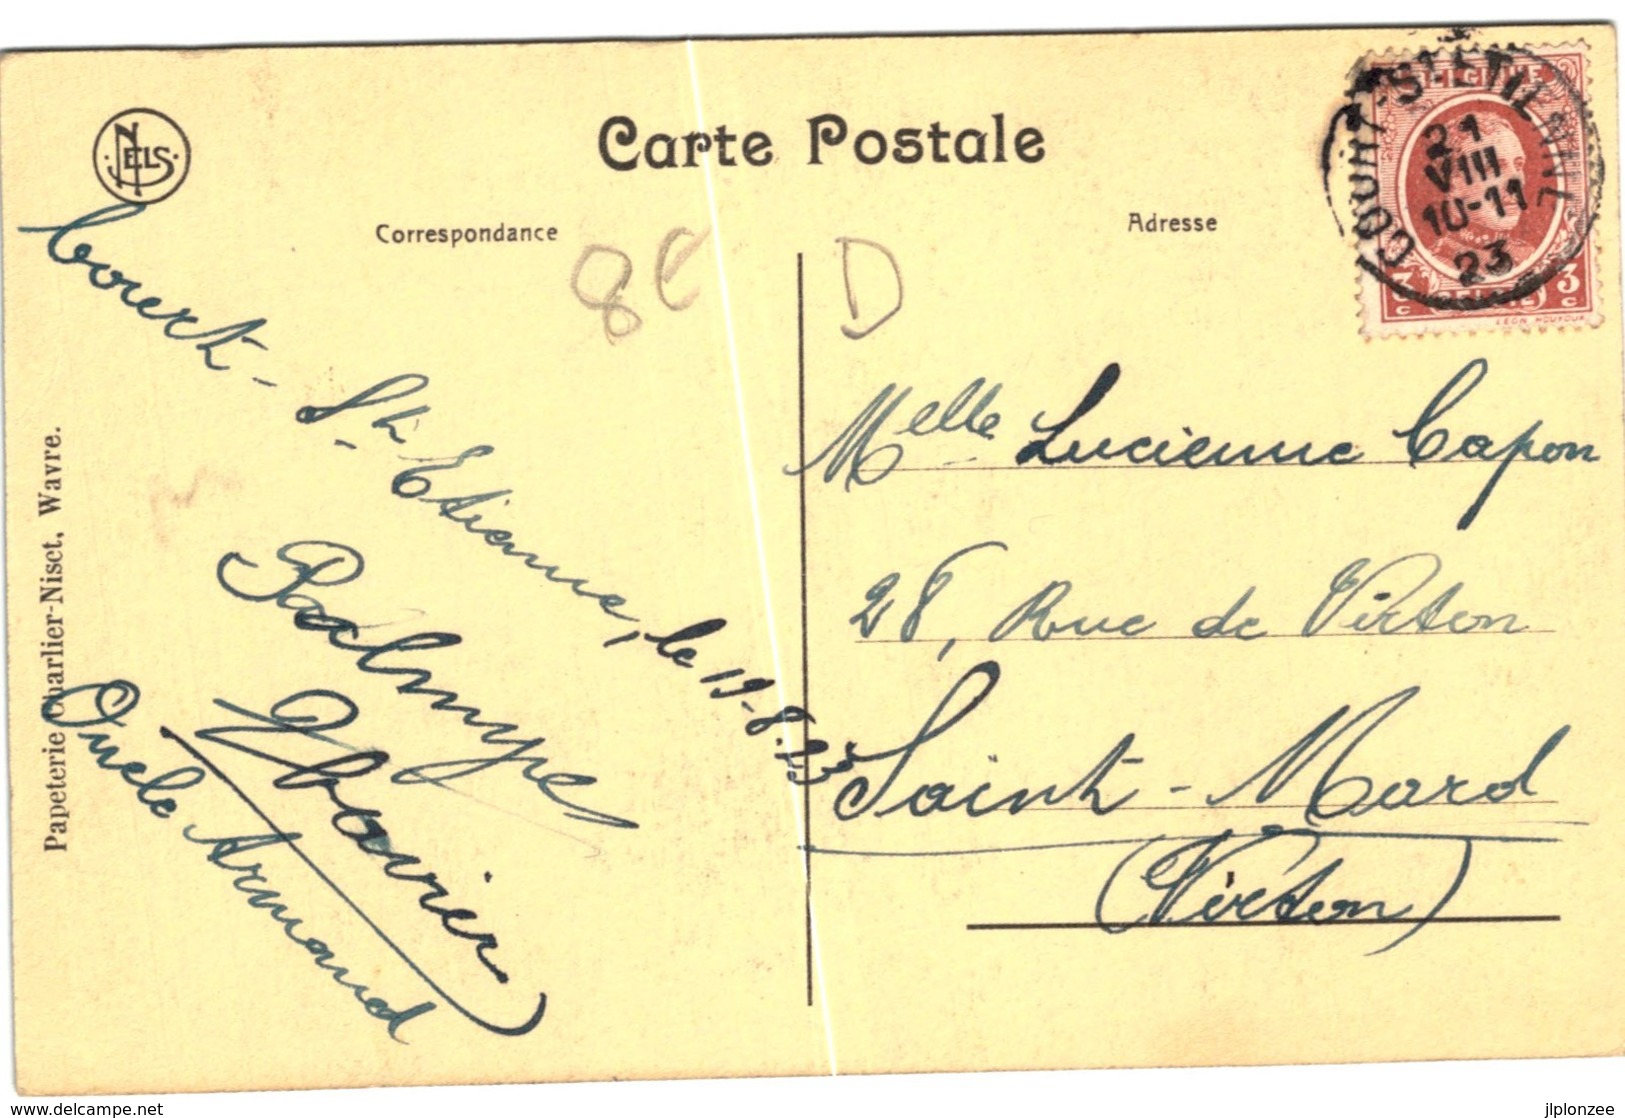 NELS
Carte Postale
Correspondance
Adresse
8c
D
COURT-ST-ETIENNE
21
VIII
10-11
23
BELGIQUE
3 3
c BELGIE c
LEON HOUYOUX
Court-St-Etienne, le 19-8-23
Palmyre
Oncle Armand
Melle Lucienne Capon
28, Rue de Virton
Saint-Mard
(Virton)
Papeterie Charlier-Niset, Wavre.
https://www.delcampe.net
jlplonzee